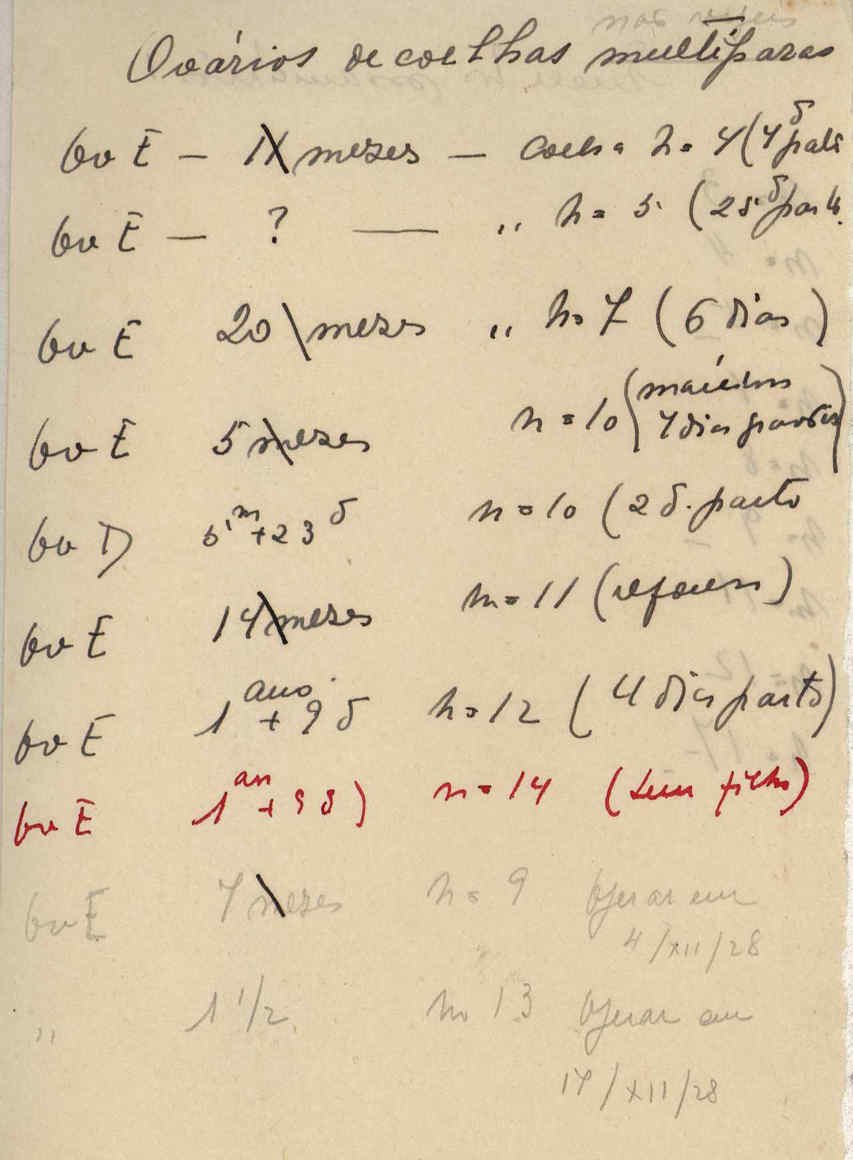 Ovários de coelhas multíparas
Ov E — mezes — coelha n = 4 (
Ov E — ? — ,, n = 5 (25 δ parto
Ov E 20 mezes ,, n = 7 (6 dias)
Ov E 5 mezes n = 10
Ov D 5 m + 23 δ n = 10 (2 δ. parto
Ov E 14 mezes n = 11 (
Ov E 1 ano + 9 δ n = 12 (4 dias parto)
Ov E 1 an + 9 δ) n = 14 (sem filho)
Ov E 7 mezes n = 9 Operar em
4/XII/28
,, 1 1/2 n = 13 Operar em
17/XII/28